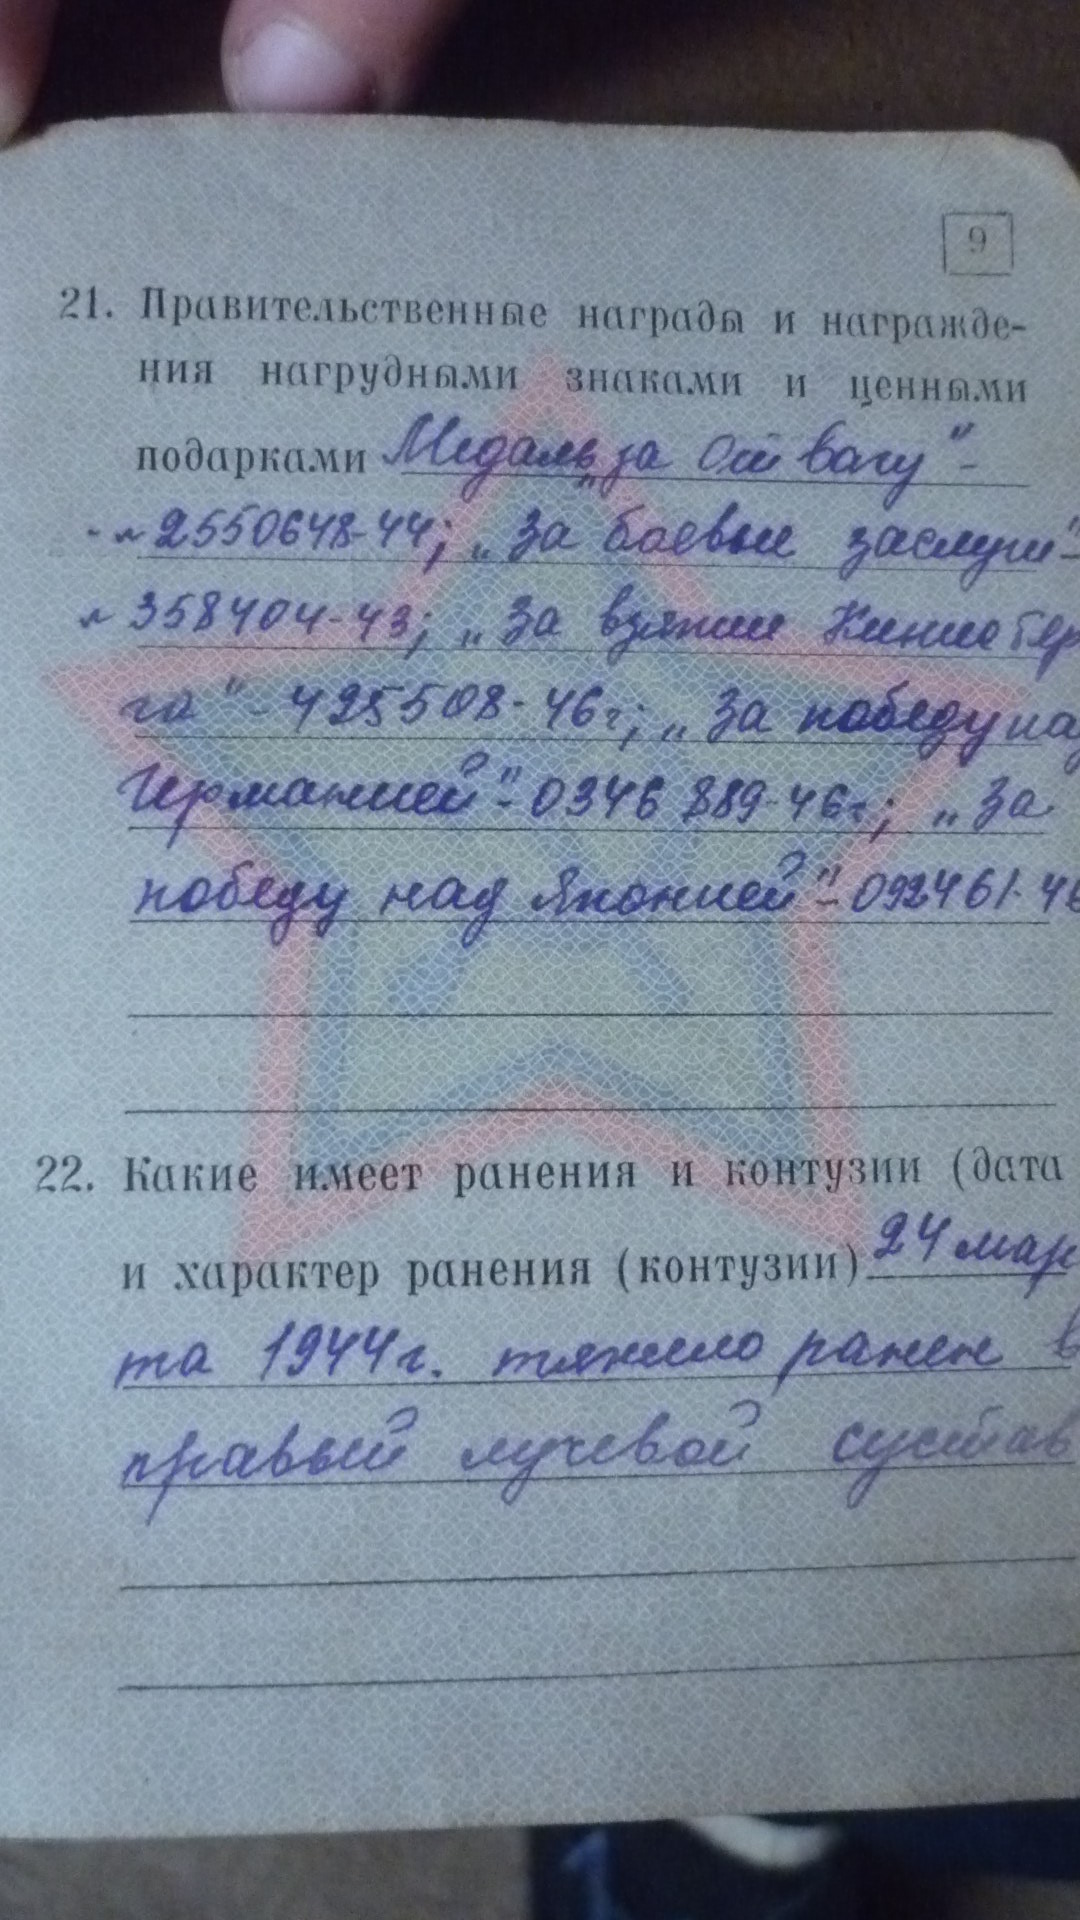 9
21. Правительственные награды и награжде-
ния нагрудными знаками и ценными
подарками Медаль „за Отвагу" -
- № 2550648-44; „За боевые заслуги" -
№ 358404-43; „За взятие Кенигсбер
га" - 425508-46г; „За победу над
Германией" - 0346889-46г; „За
победу над Японией" - 092461-46
22. Какие имеет ранения и контузии (дата
и характер ранения (контузии) 24 мар
та 1944г. тяжело ранен в
правый лучевой сустав